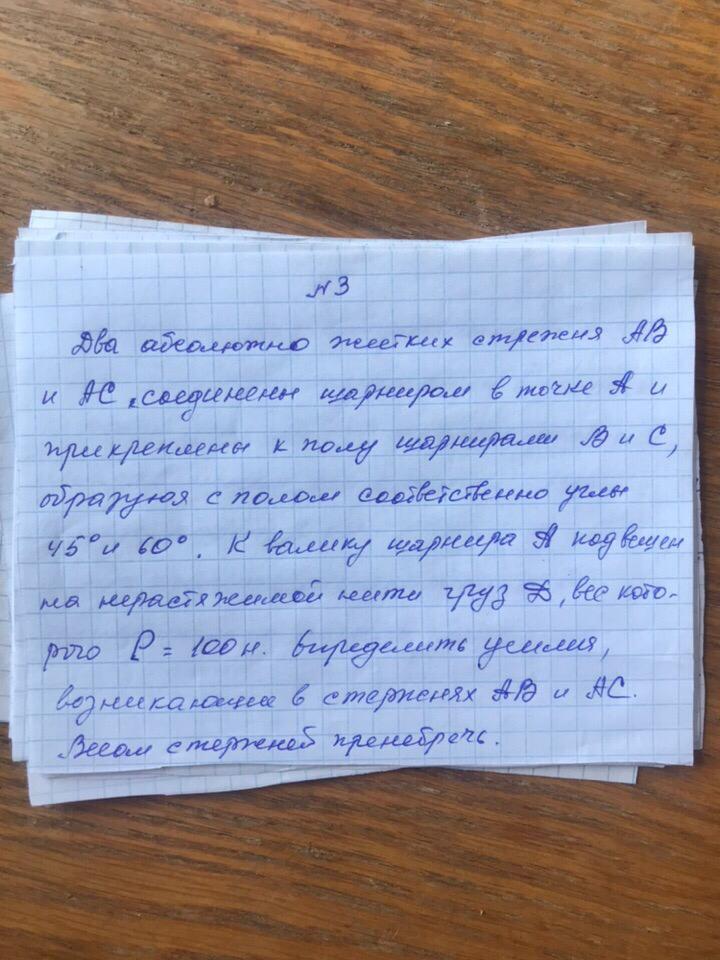 №3
Два абсолютно жестких стрежня АВ
и АС, соединены шарниром в точке А и
прикреплены к полу шарнирами В и С,
образуя с полом соответственно углы
45° и 60°. К валику шарнира А подвешен
на нерастяжимой нити груз D, вес кото-
рого P = 100 н. Определить усилия,
возникающие в стержнях АВ и АС.
Весом стержней пренебречь.